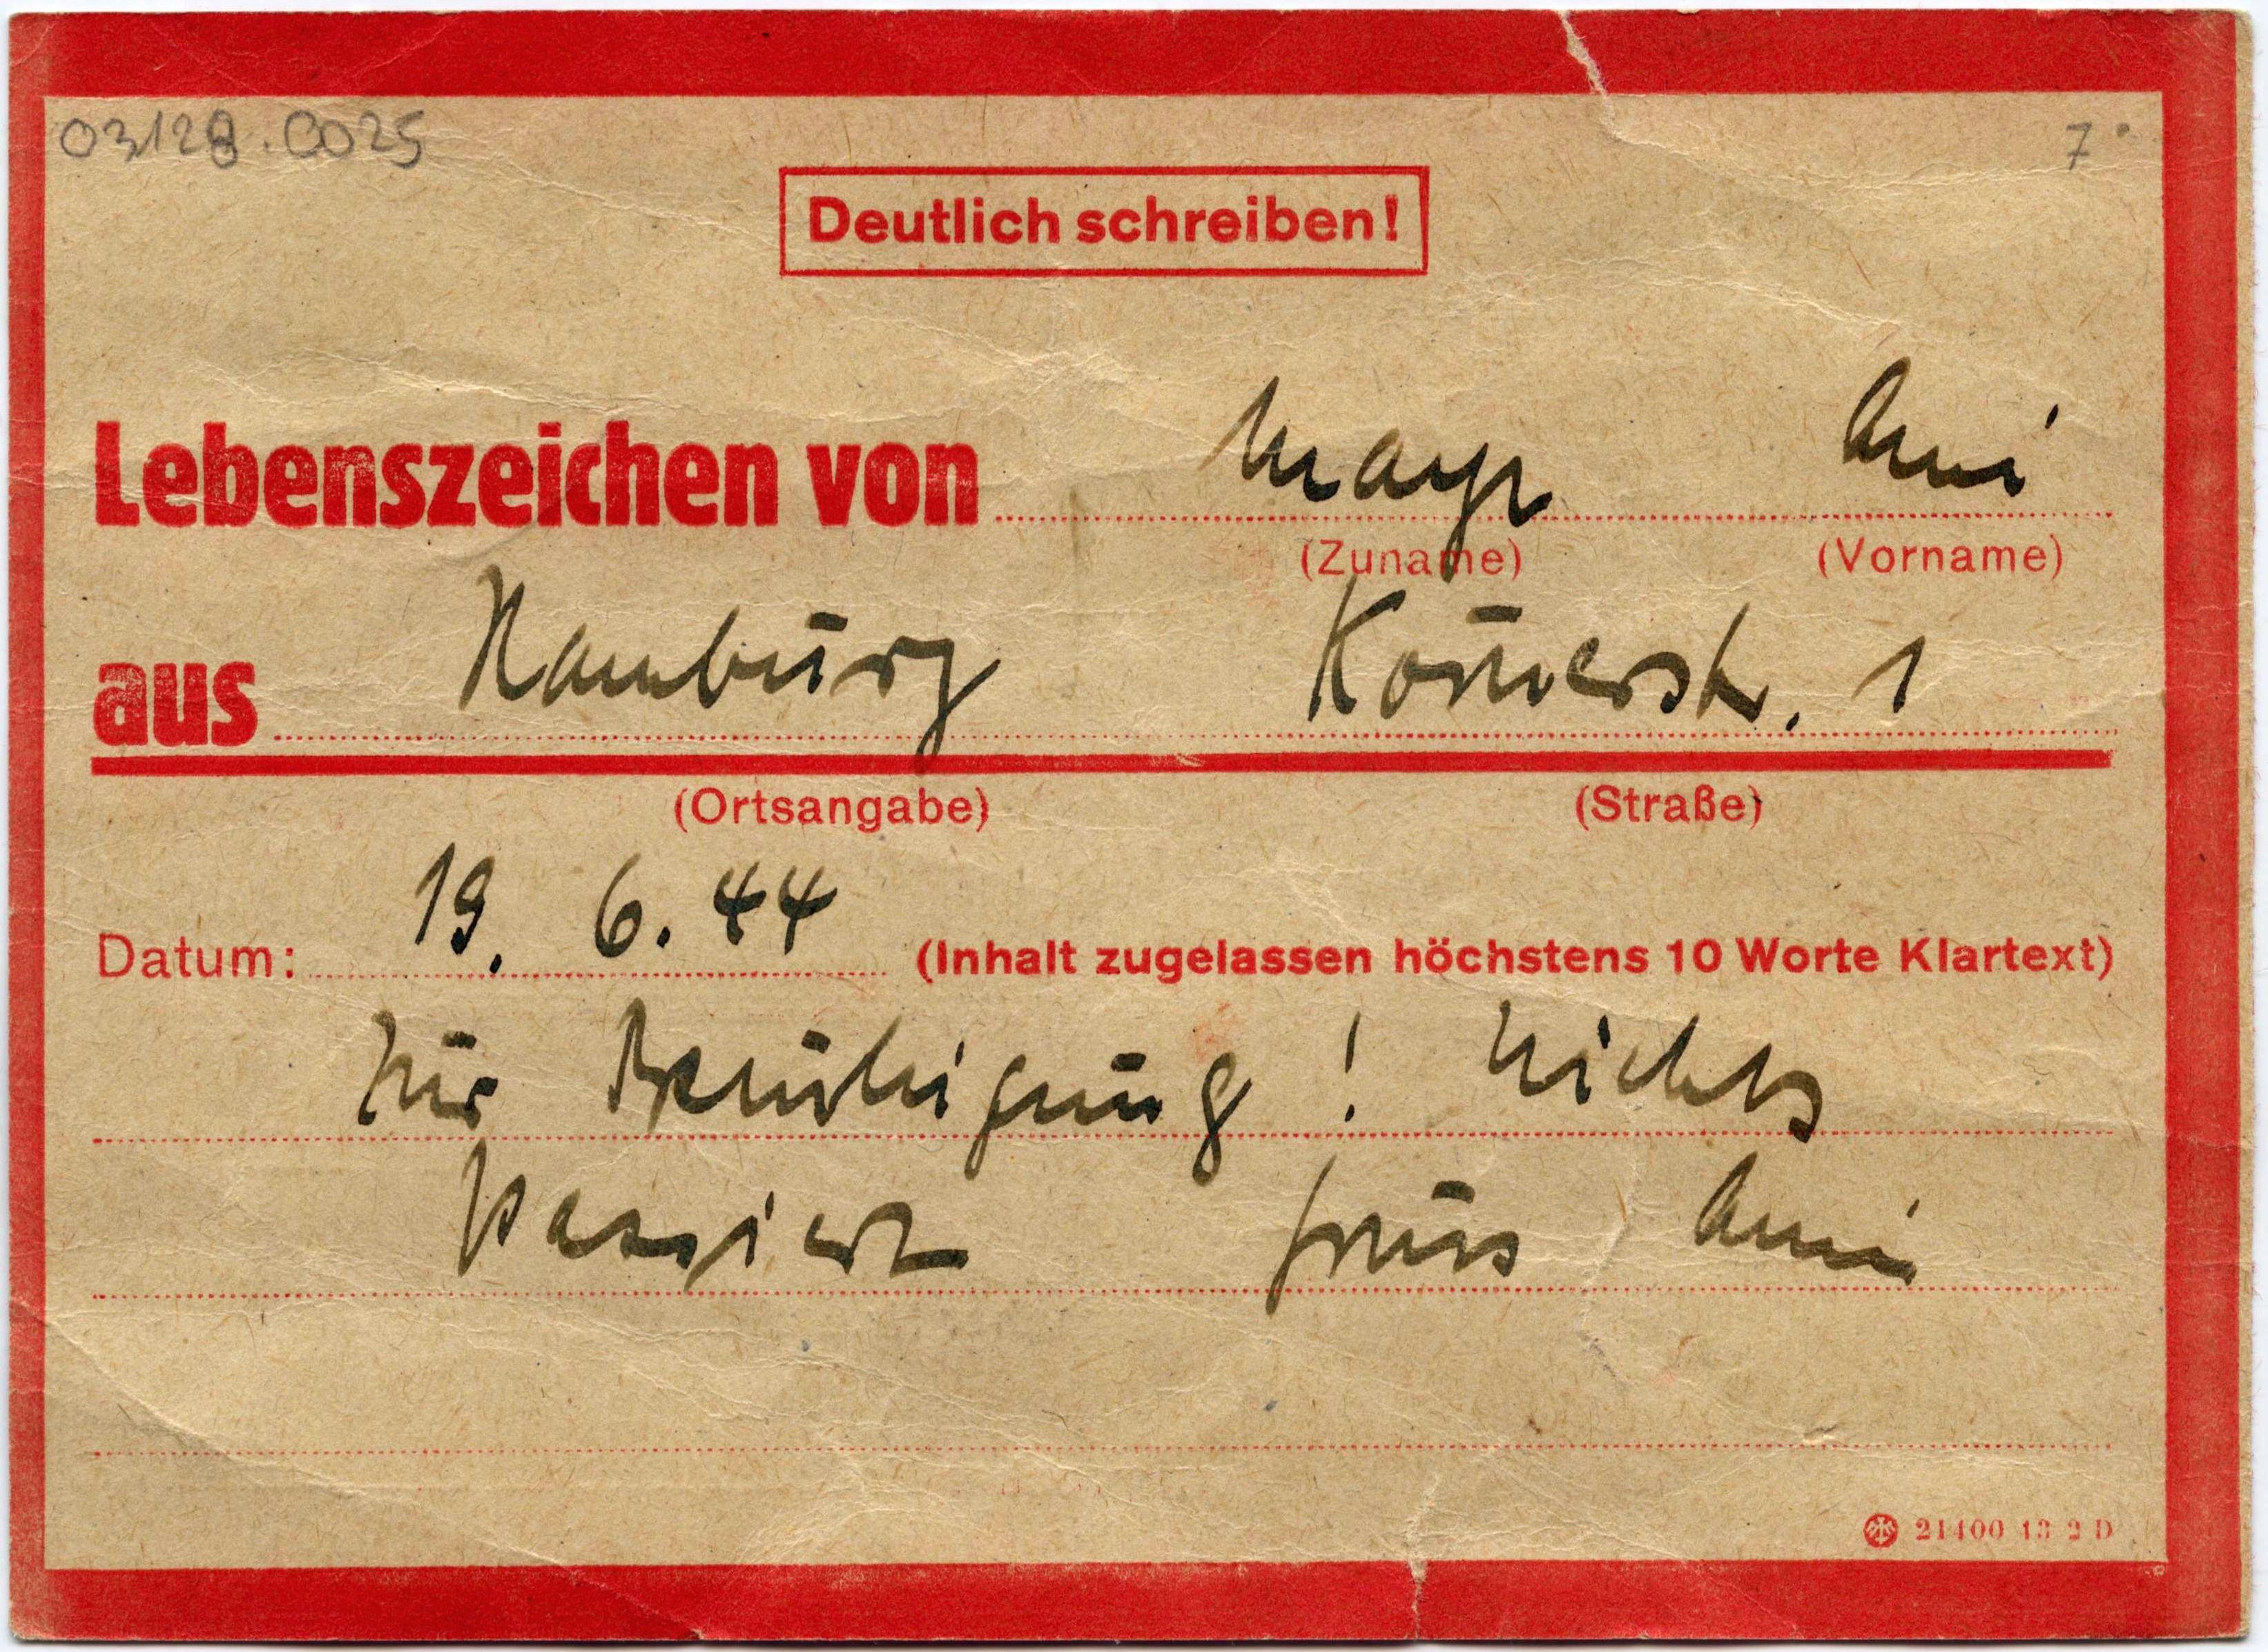 03128.0025 7
Deutlich schreiben!
Lebenszeichen von Mayr Anni
(Zuname) (Vorname)
aus Hamburg Körnerstr. 1
(Ortsangabe) (Straße)
Datum: 19. 6. 44 (Inhalt zugelassen höchstens 10 Worte Klartext)
Zur Beruhigung! Nichts
Passiert Gruss Anni
21400 13 2 D